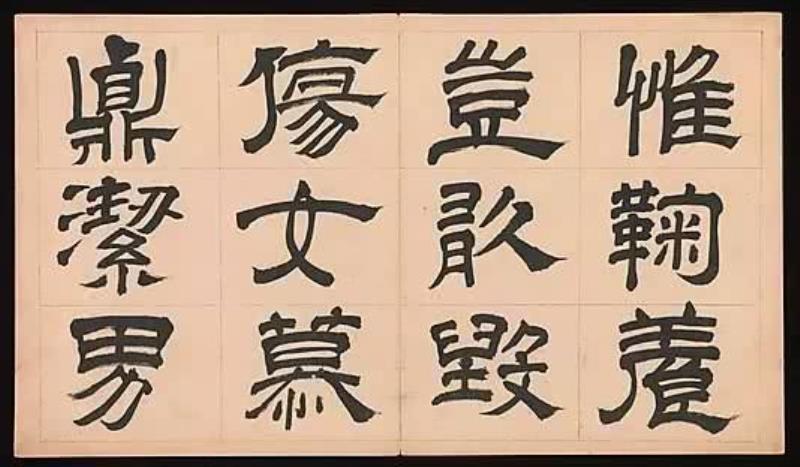 惟鞠養
豈敢毀
傷女慕
鼎潔男